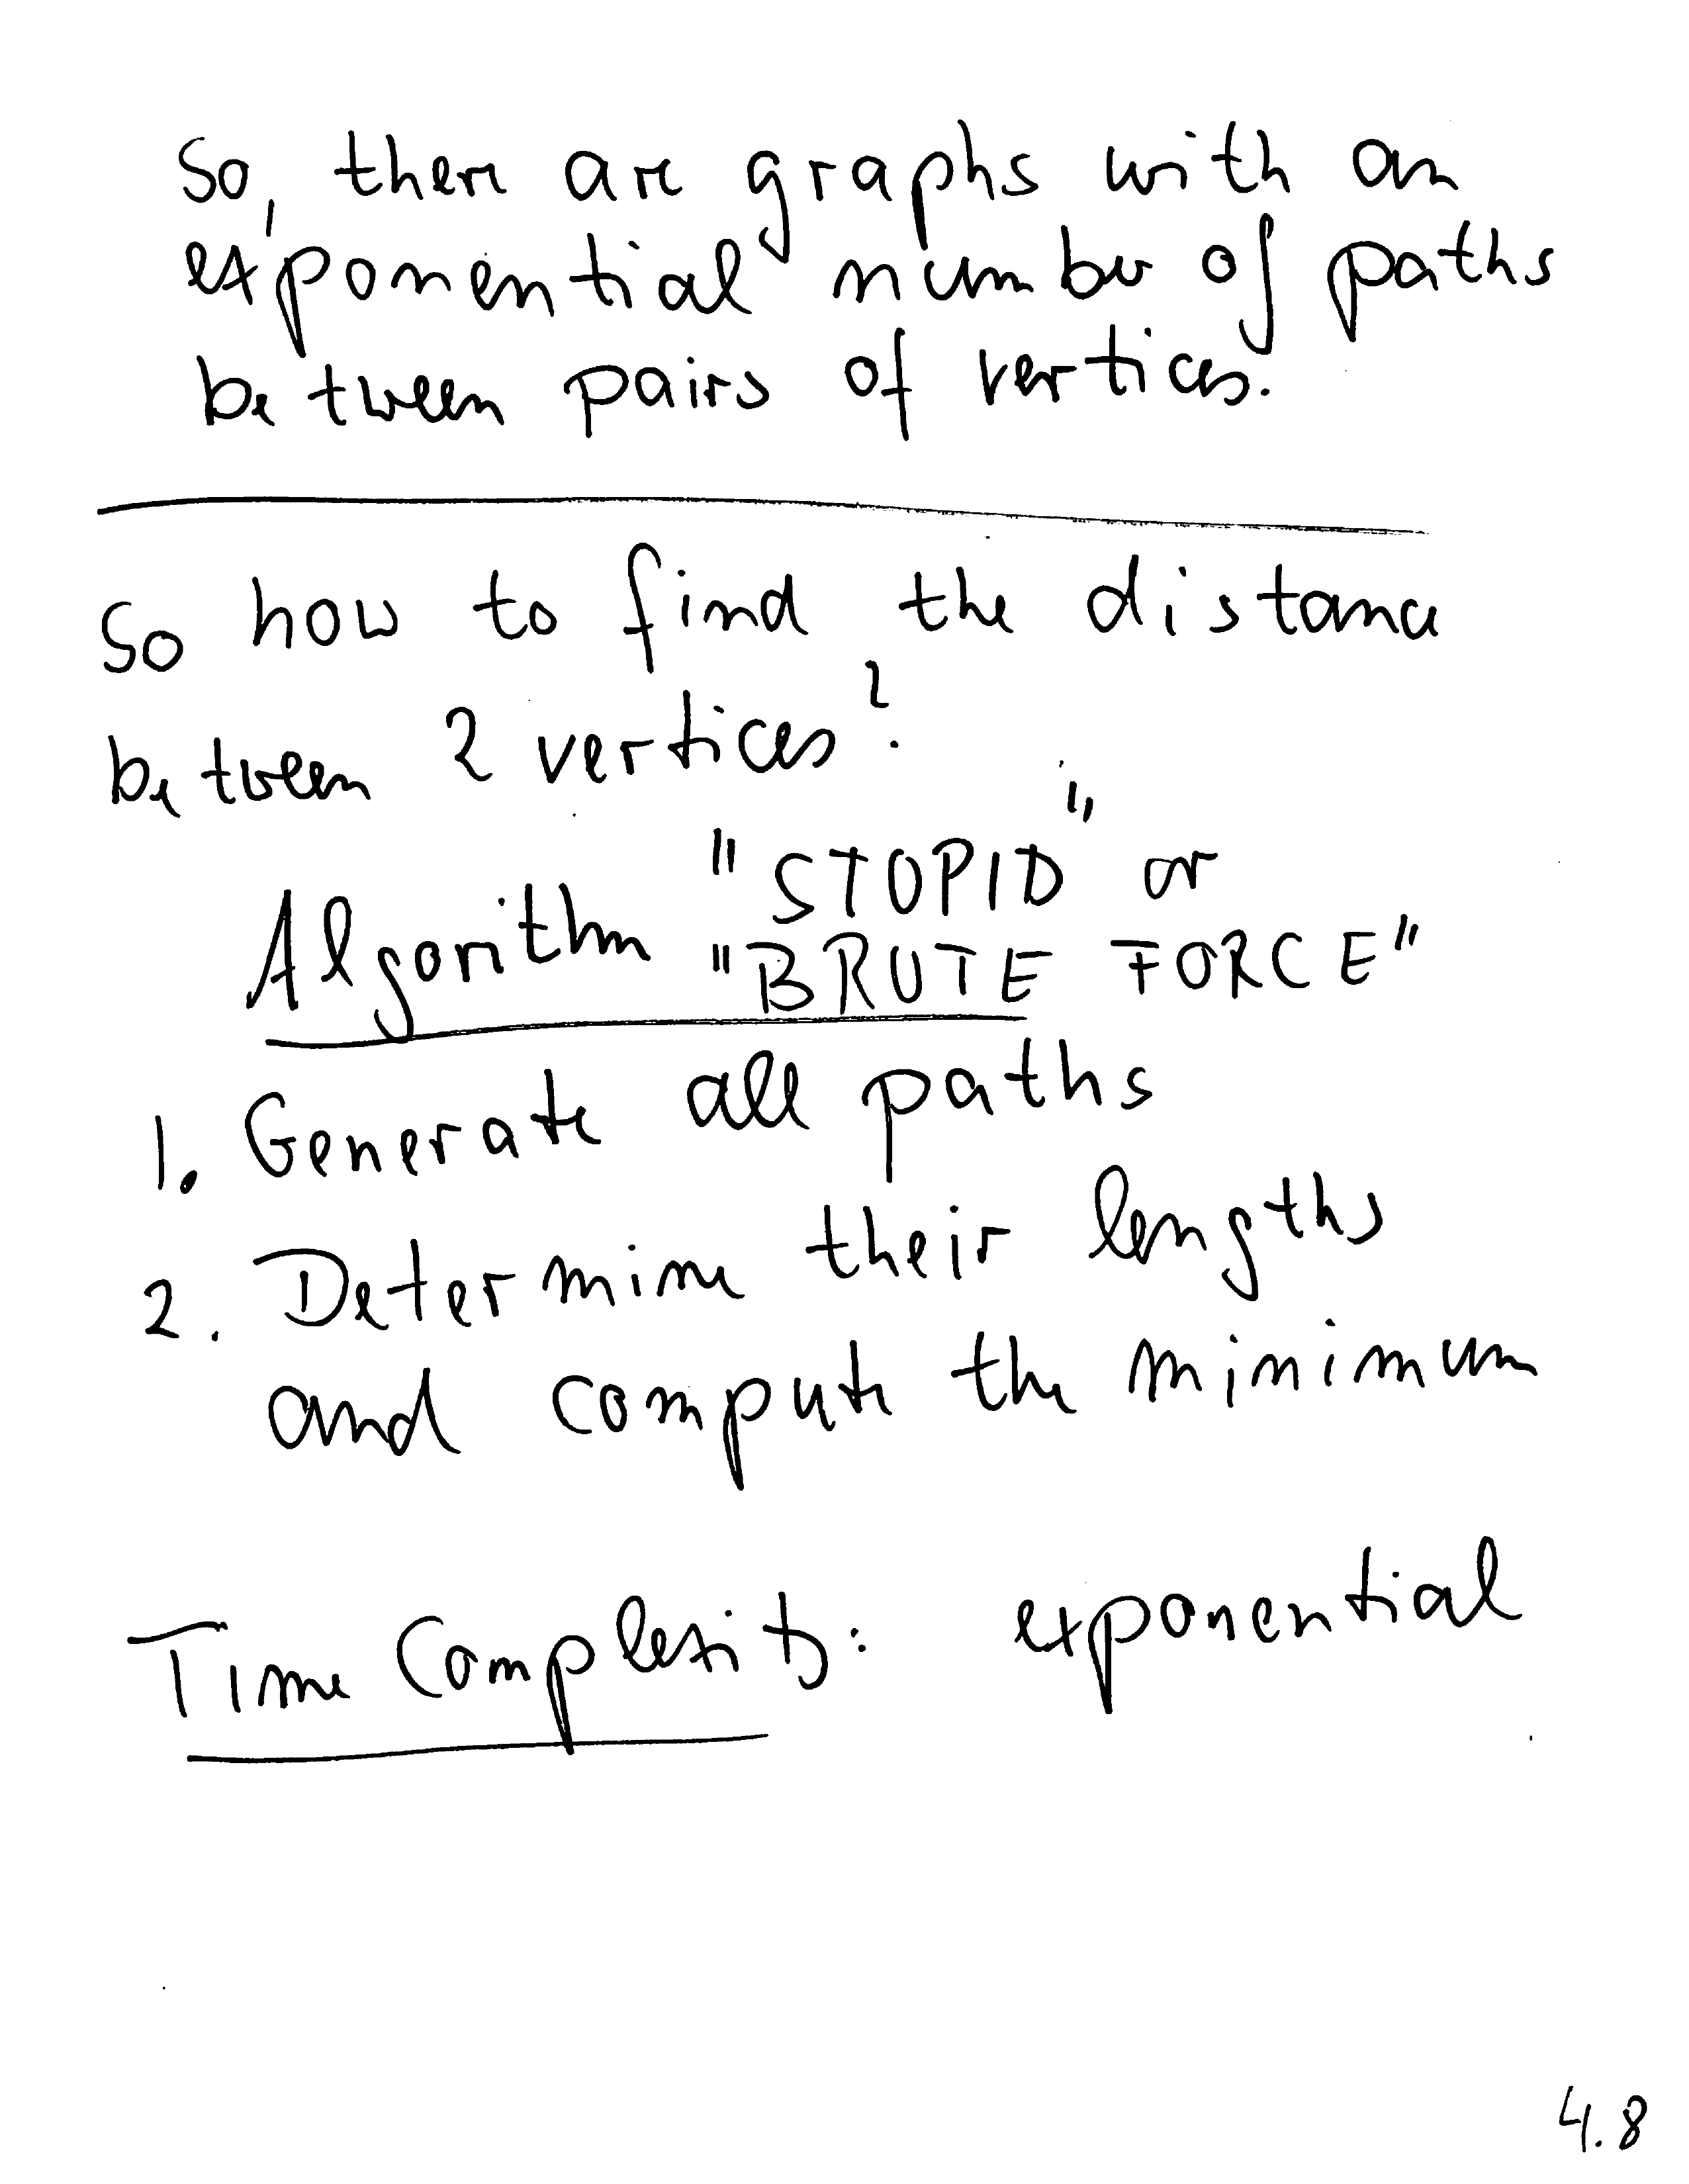 So, there are graphs with an
exponential number of paths
between pairs of vertices.
So how to find the distance
between 2 vertices?
"STUPID" or
Algorithm "BRUTE FORCE"
1. Generate all paths
2. Determine their lengths
and compute the minimum
Time Complexity: exponential
4.8